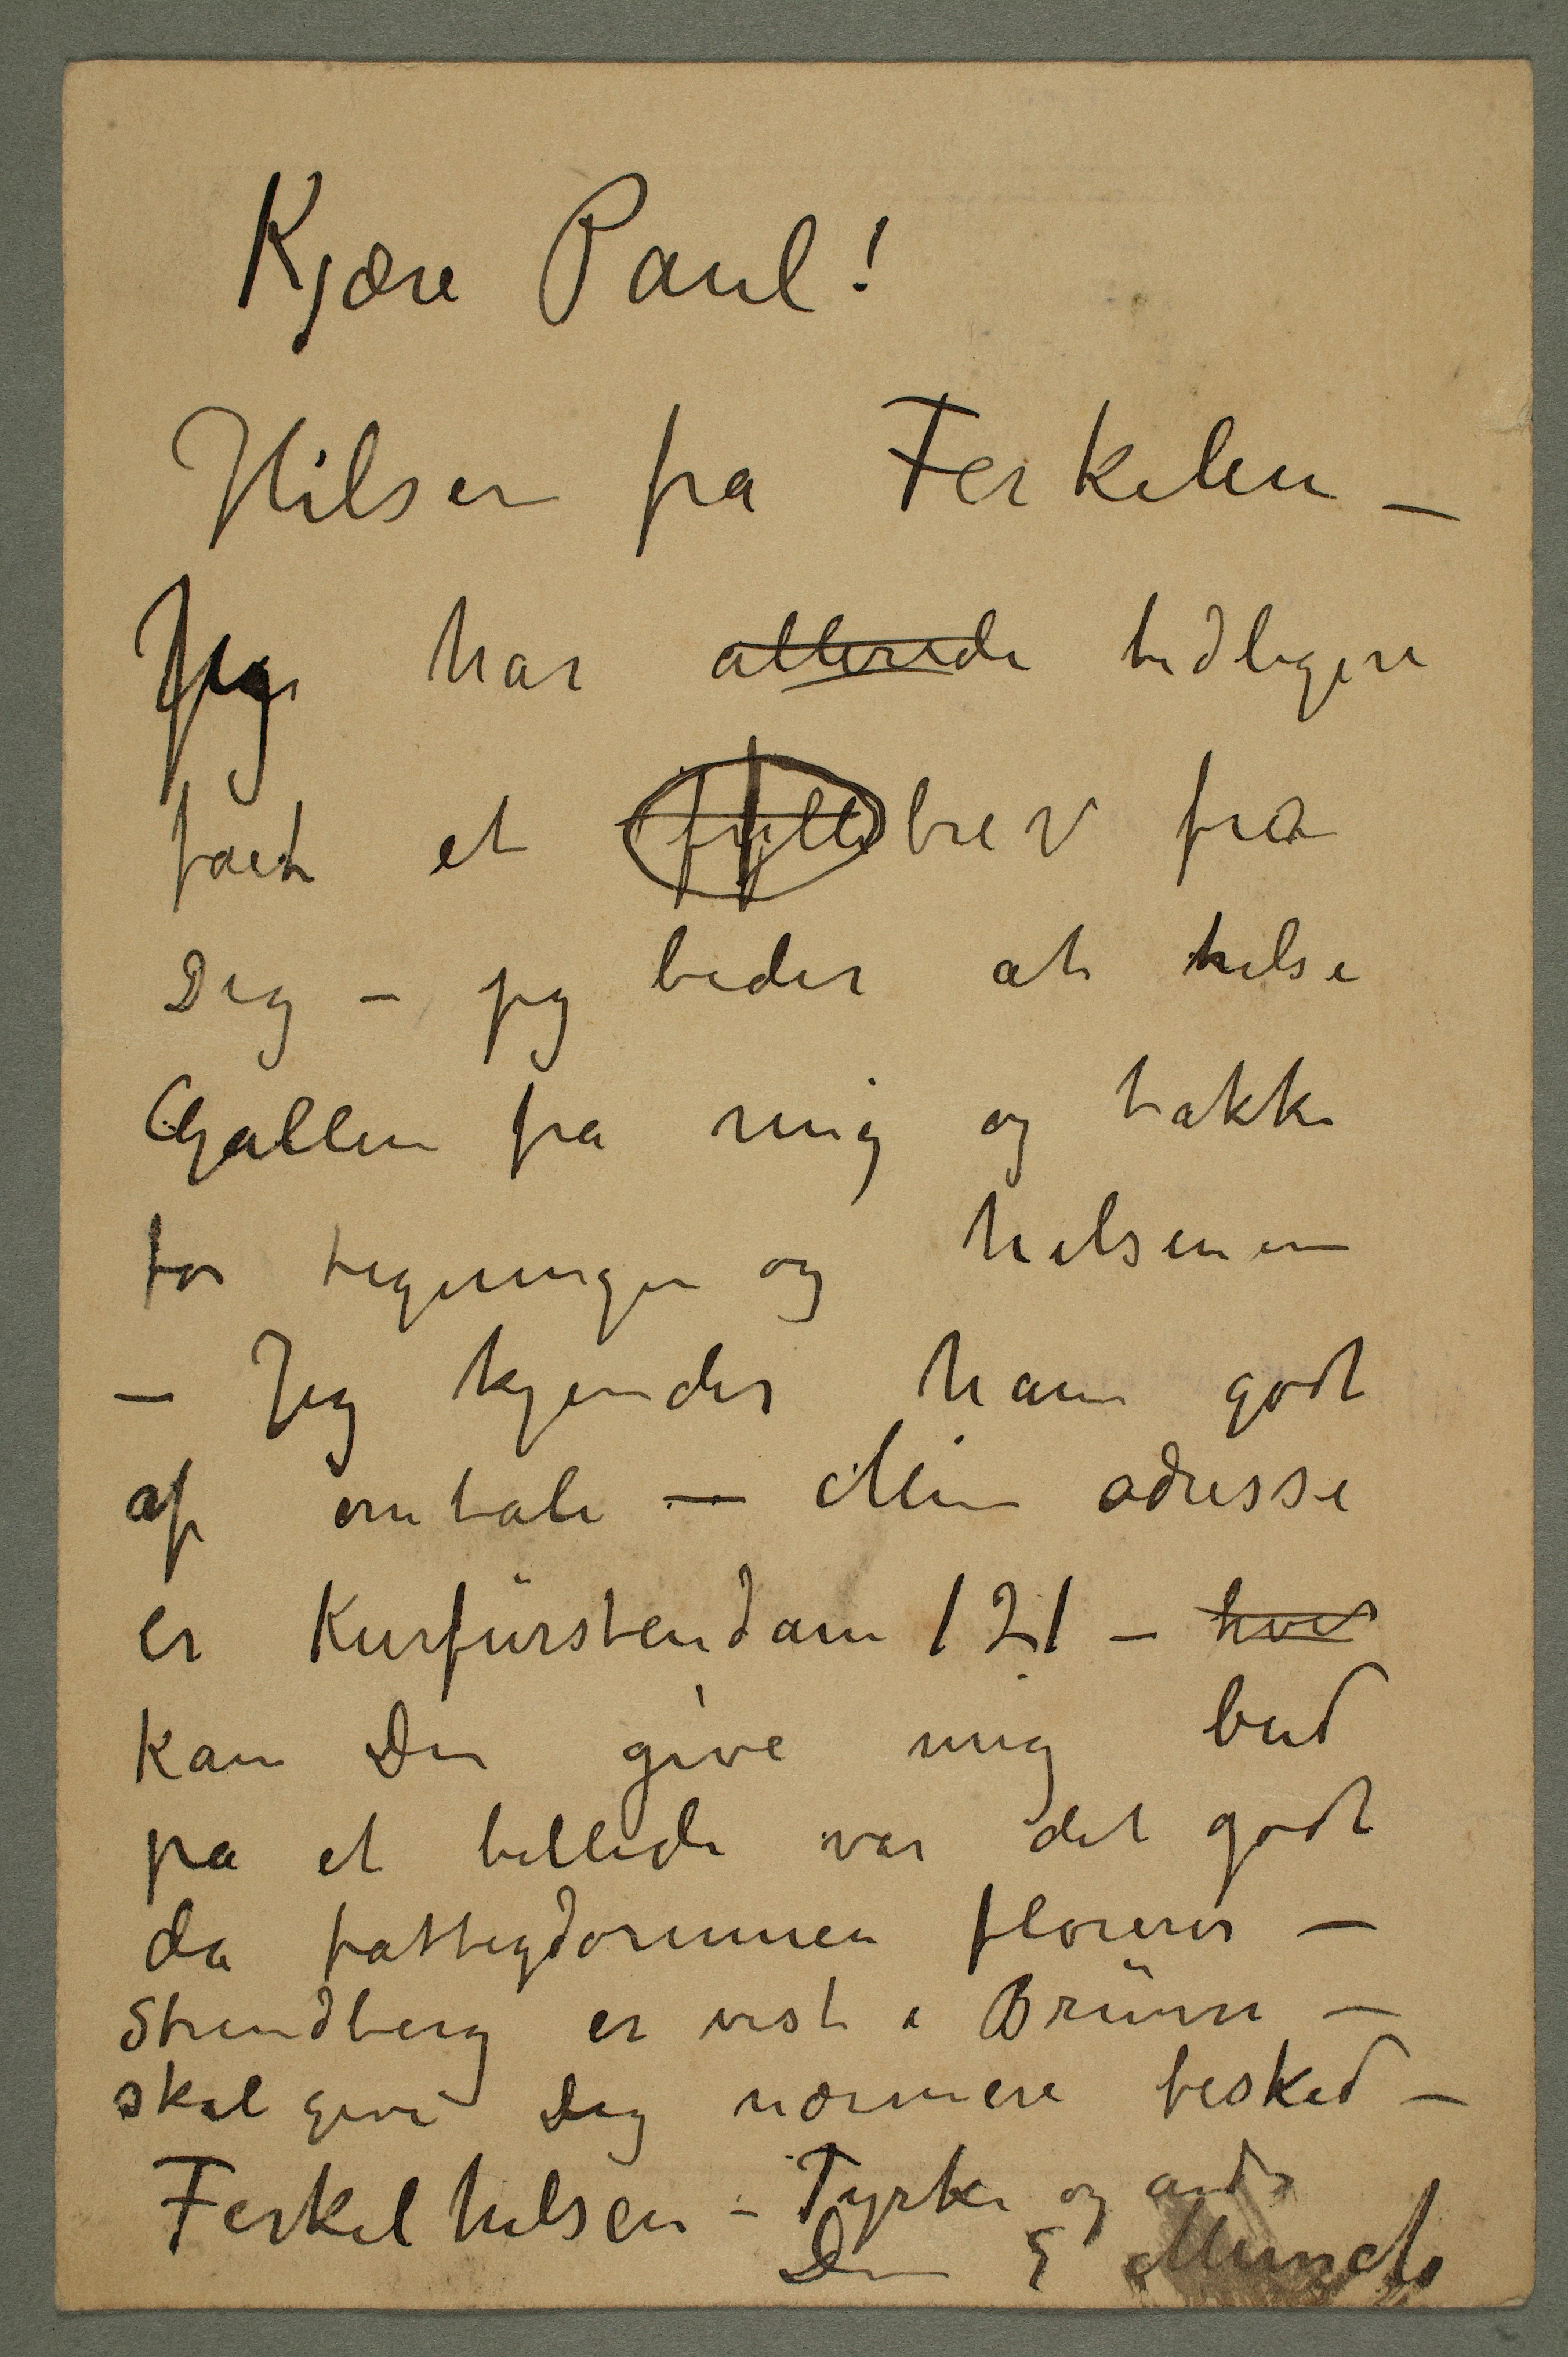 Kjære Paul!
Hilsen fra Ferkelen –
Jeg har allerede tidligere
fået et fyllebrev fra
Dig – jeg beder at hilse
Gallen fra mig og takke
for tegninger og hilsenen
– Jeg kjender ham godt
af omtale – Min adresse
er Kurfürstendam 121 – hvis
kan Du give mig bud
på et billede var det godt
da fattigdommen florerer –
Strindberg er vist i Brünn –
skal give Dig nærmere besked –
Ferkelhilsen – Tyrke og
Din E Munch